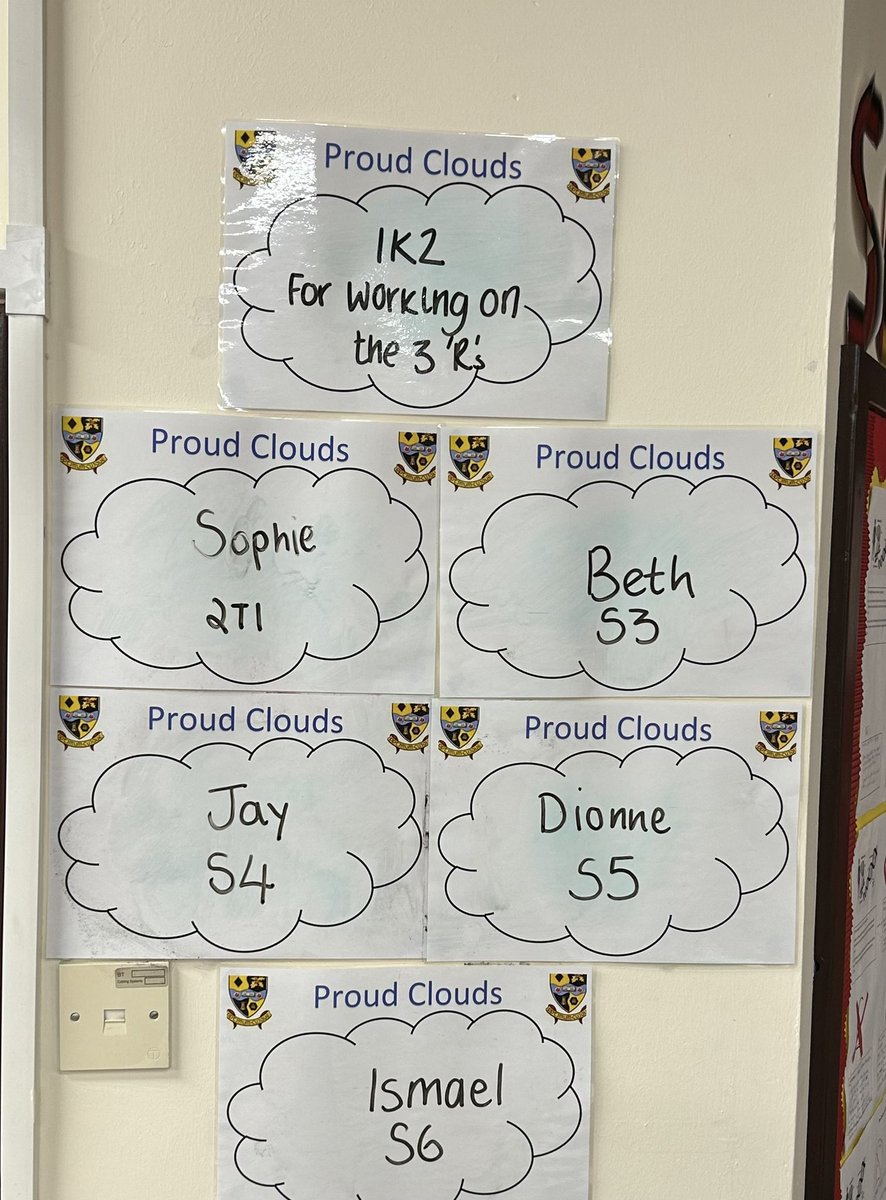 Proud Clouds
1K2
For working on
the 3 'R's
Proud Clouds
Sophie
2T1
Proud Clouds
Beth
S3
Proud Clouds
Jay
S4
Proud Clouds
Dionne
S5
BT
Proud Clouds
Ismael
S6